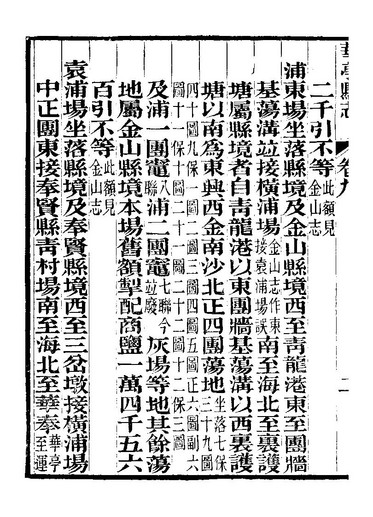 華亭縣志 卷九 二
二千引不等此額見金山志
浦東場坐落縣境及金山縣境西至青龍港東至團牆
基蕩溝竝接橫浦場金山志作東接袁浦場誤南至海北至裏護
塘屬縣境者自青龍港以東團牆基蕩溝以西裏護
塘以南為東興西金南沙北正四團蕩地坐落七保三十九圖
四十圖九保一圖二圖三圖四圖五圖正六圖副六圖十一保十圖二十一圖二十二圖十二保三圖
及浦一團竈八聯浦二團竈七聯今竝廢灰場等地其餘蕩
地屬金山縣境本場舊額掣配商鹽一萬四千五六
百引不等此額見金山志
袁浦場坐落縣境及奉賢縣境西至三岔墩接橫浦場
中正團東接奉賢縣青村場南至海北至華奉華亭至運